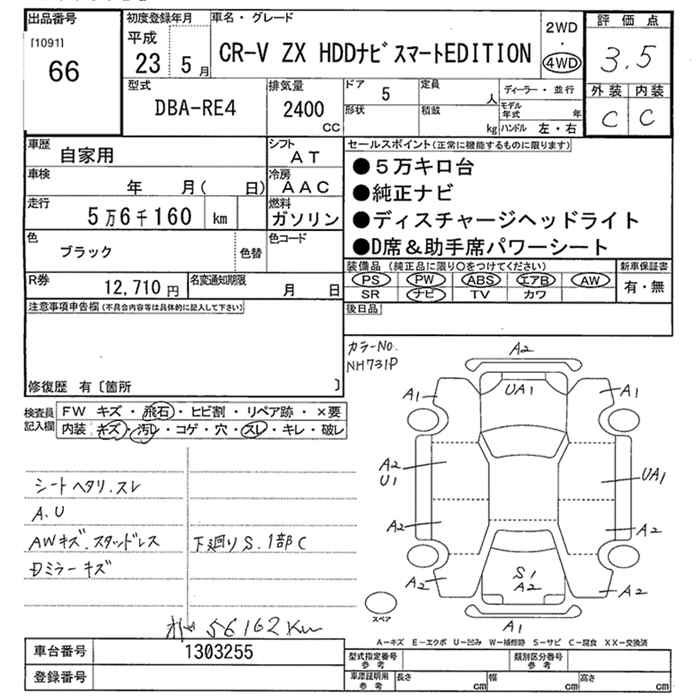 出品番号
[1091]
66
初度登録年月
平成
23 5月
車名・グレード
CR-V ZX HDDナビスマートEDITION
2WD
・
4WD
評価点
3.5
外装 内装
C C
型式
DBA-RE4
排気量
2400
CC
ドア 5
定員 人
形状
積載 kg
ディーラー・並行
モデル年式 年
ハンドル 左・右
車歴 自家用
シフト AT
車検 年 月( 日)
冷房 AAC
走行 5万6千160 km
燃料 ガソリン
色 ブラック
色替
色コード
R券 12,710円
名変通知期限 月 日
セールスポイント(正常に機能するものに限ります)
●5万キロ台
●純正ナビ
●ディスチャージヘッドライト
●D席&助手席パワーシート
装備品(純正品に限り○をつけてください)
新車保証書
PS PW ABS エアB AW
SR ナビ TV カワ
有・無
注意事項申告欄(不具合内容等は具体的に記入して下さい)
後日品
修復歴 有〔箇所 〕
検査員記入欄
FW キズ・飛石・ヒビ割・リペア跡・×要
内装 キズ・汚レ・コゲ・穴・スレ・キレ・破レ
カラーNo.
NH731P
A2
UA1
A1
A1
A2
U1
UA1
A2
A2
S1
A2
A2
A2
A1
スペア
シートヘタリ.スレ
A.U
AWキズ.スタッドレス
Dミラーキズ
下廻りS.1部C
56162Km
A−キズ E−エクボ U−凹み W−補修跡 S−サビ C−腐食 XX−交換済
車台番号 1303255
登録番号
型式指定番号 参考
類別区分番号 参考
車庫証明用 参考
長さ cm
幅 cm
高さ cm